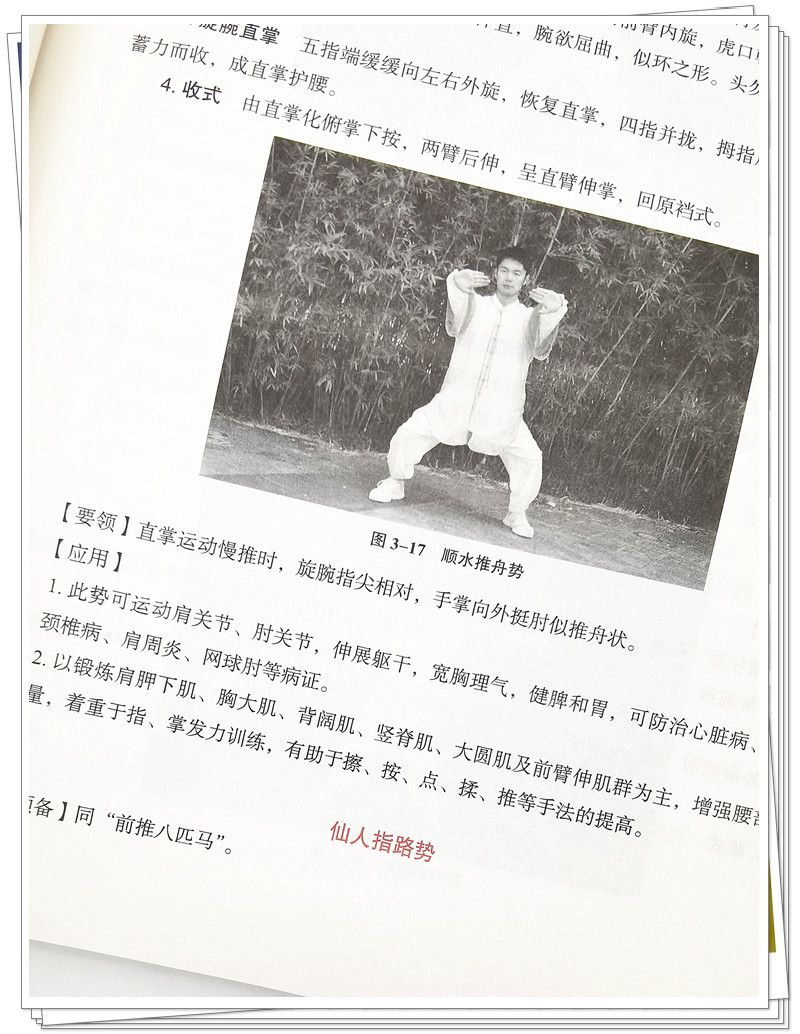 前臂内旋，虎口
旋腕直掌 五指端缓缓向左右外旋，恢复直掌，四指并拢，拇指
腕欲屈曲，似环之形。头勿
蓄力而收，成直掌护腰。
4. 收式 由直掌化俯掌下按，两臂后伸，呈直臂伸掌，回原裆式。
图 3–17 顺水推舟势
【要领】直掌运动慢推时，旋腕指尖相对，手掌向外挺肘似推舟状。
【应用】
1. 此势可运动肩关节、肘关节，伸展躯干，宽胸理气，健脾和胃，可防治心脏病、
颈椎病、肩周炎、网球肘等病证。
2. 以锻炼肩胛下肌、胸大肌、背阔肌、竖脊肌、大圆肌及前臂伸肌群为主，增强腰部
量，着重于指、掌发力训练，有助于擦、按、点、揉、推等手法的提高。
仙人指路势
备】同“前推八匹马”。